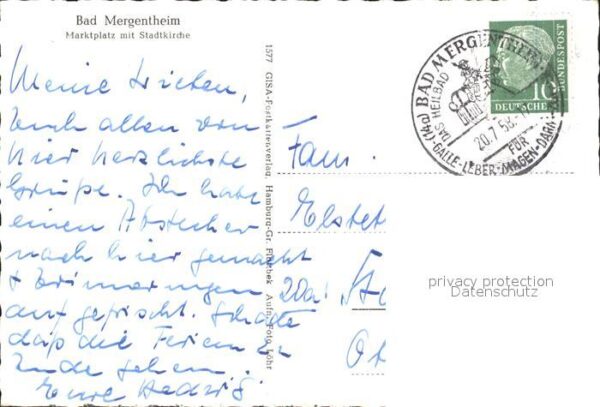 Bad Mergentheim
Marktplatz mit Stadtkirche
Meine Lieben,
Euch allen von
hier herzlichste
Grüße. Ich habe
einen Abstecher
nach hier gemacht
+ Erinnerungen
aufgefrischt. Schade
daß die Ferien zu
Ende gehen.
Eure Hedwig
1577 GISA-Postkartenverlag, Hamburg-Gr. Flottbek Aufn. Foto Löhr
(14a) BAD MERGENTHEIM
DAS HEILBAD
20.7.58
FÜR
GALLE-LEBER-MAGEN-DARM
10
DEUTSCHE
BUNDESPOST
Fam.
Elstet
20a!
Ob
privacy protection
Datenschutz